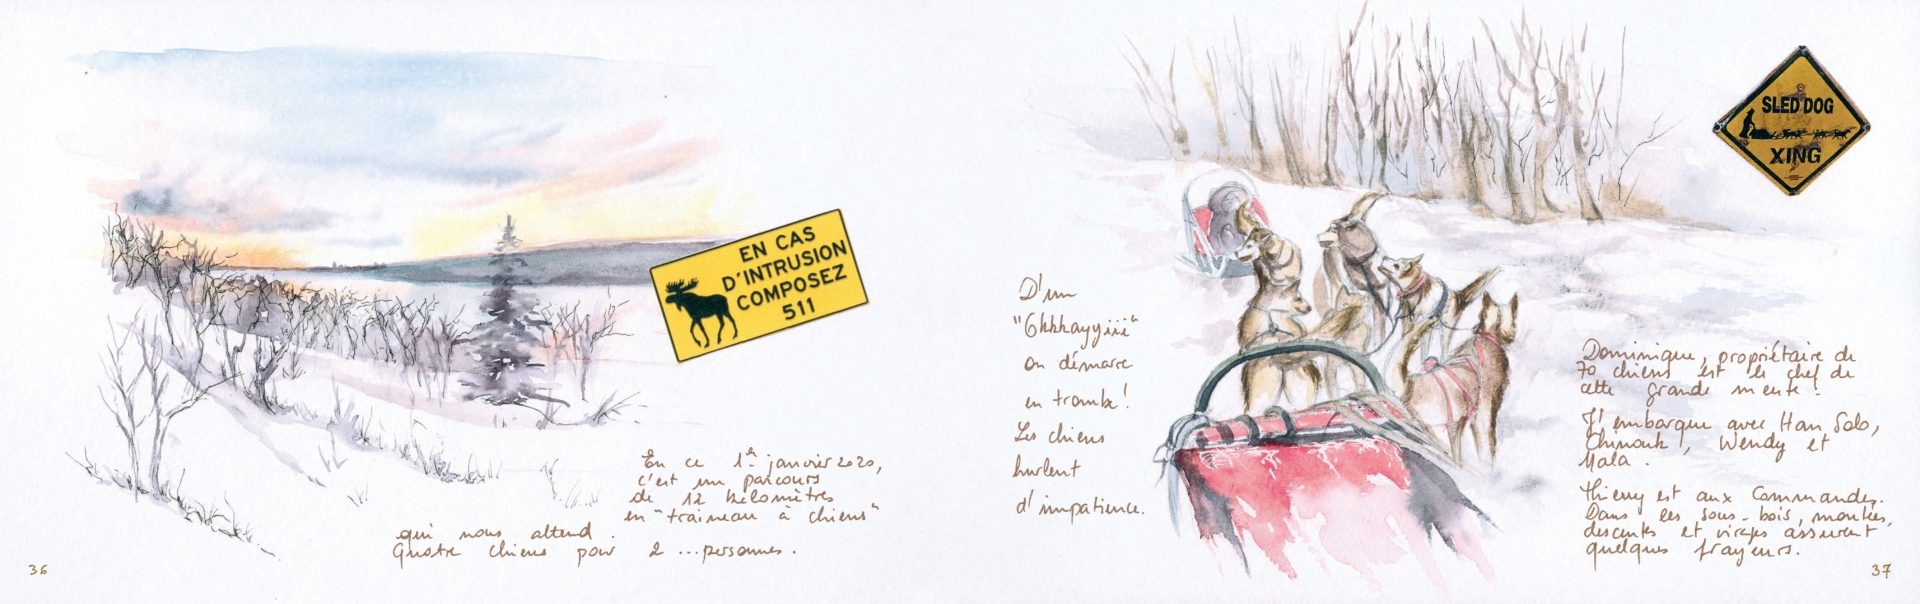 EN CAS
D'INTRUSION
COMPOSEZ
511
En ce 1er janvier 2020,
c'est un parcours
de 12 kilomètres
en "traineau à chiens"
qui nous attend.
Quatre chiens pour 2 ...personnes.
36
D'un
on démarre
en trombe!
Les chiens
hurlent
d'impatience.
SLED DOG
XING
Dominique, propriétaire de
70 chiens est le chef de
cette grande meute!
Il embarque avec Han Solo,
Chinouk, Wendy et
Mala.
Thierry est aux commandes.
Dans les sous-bois, montées,
descentes et virages assurent
quelques frayeurs.
37